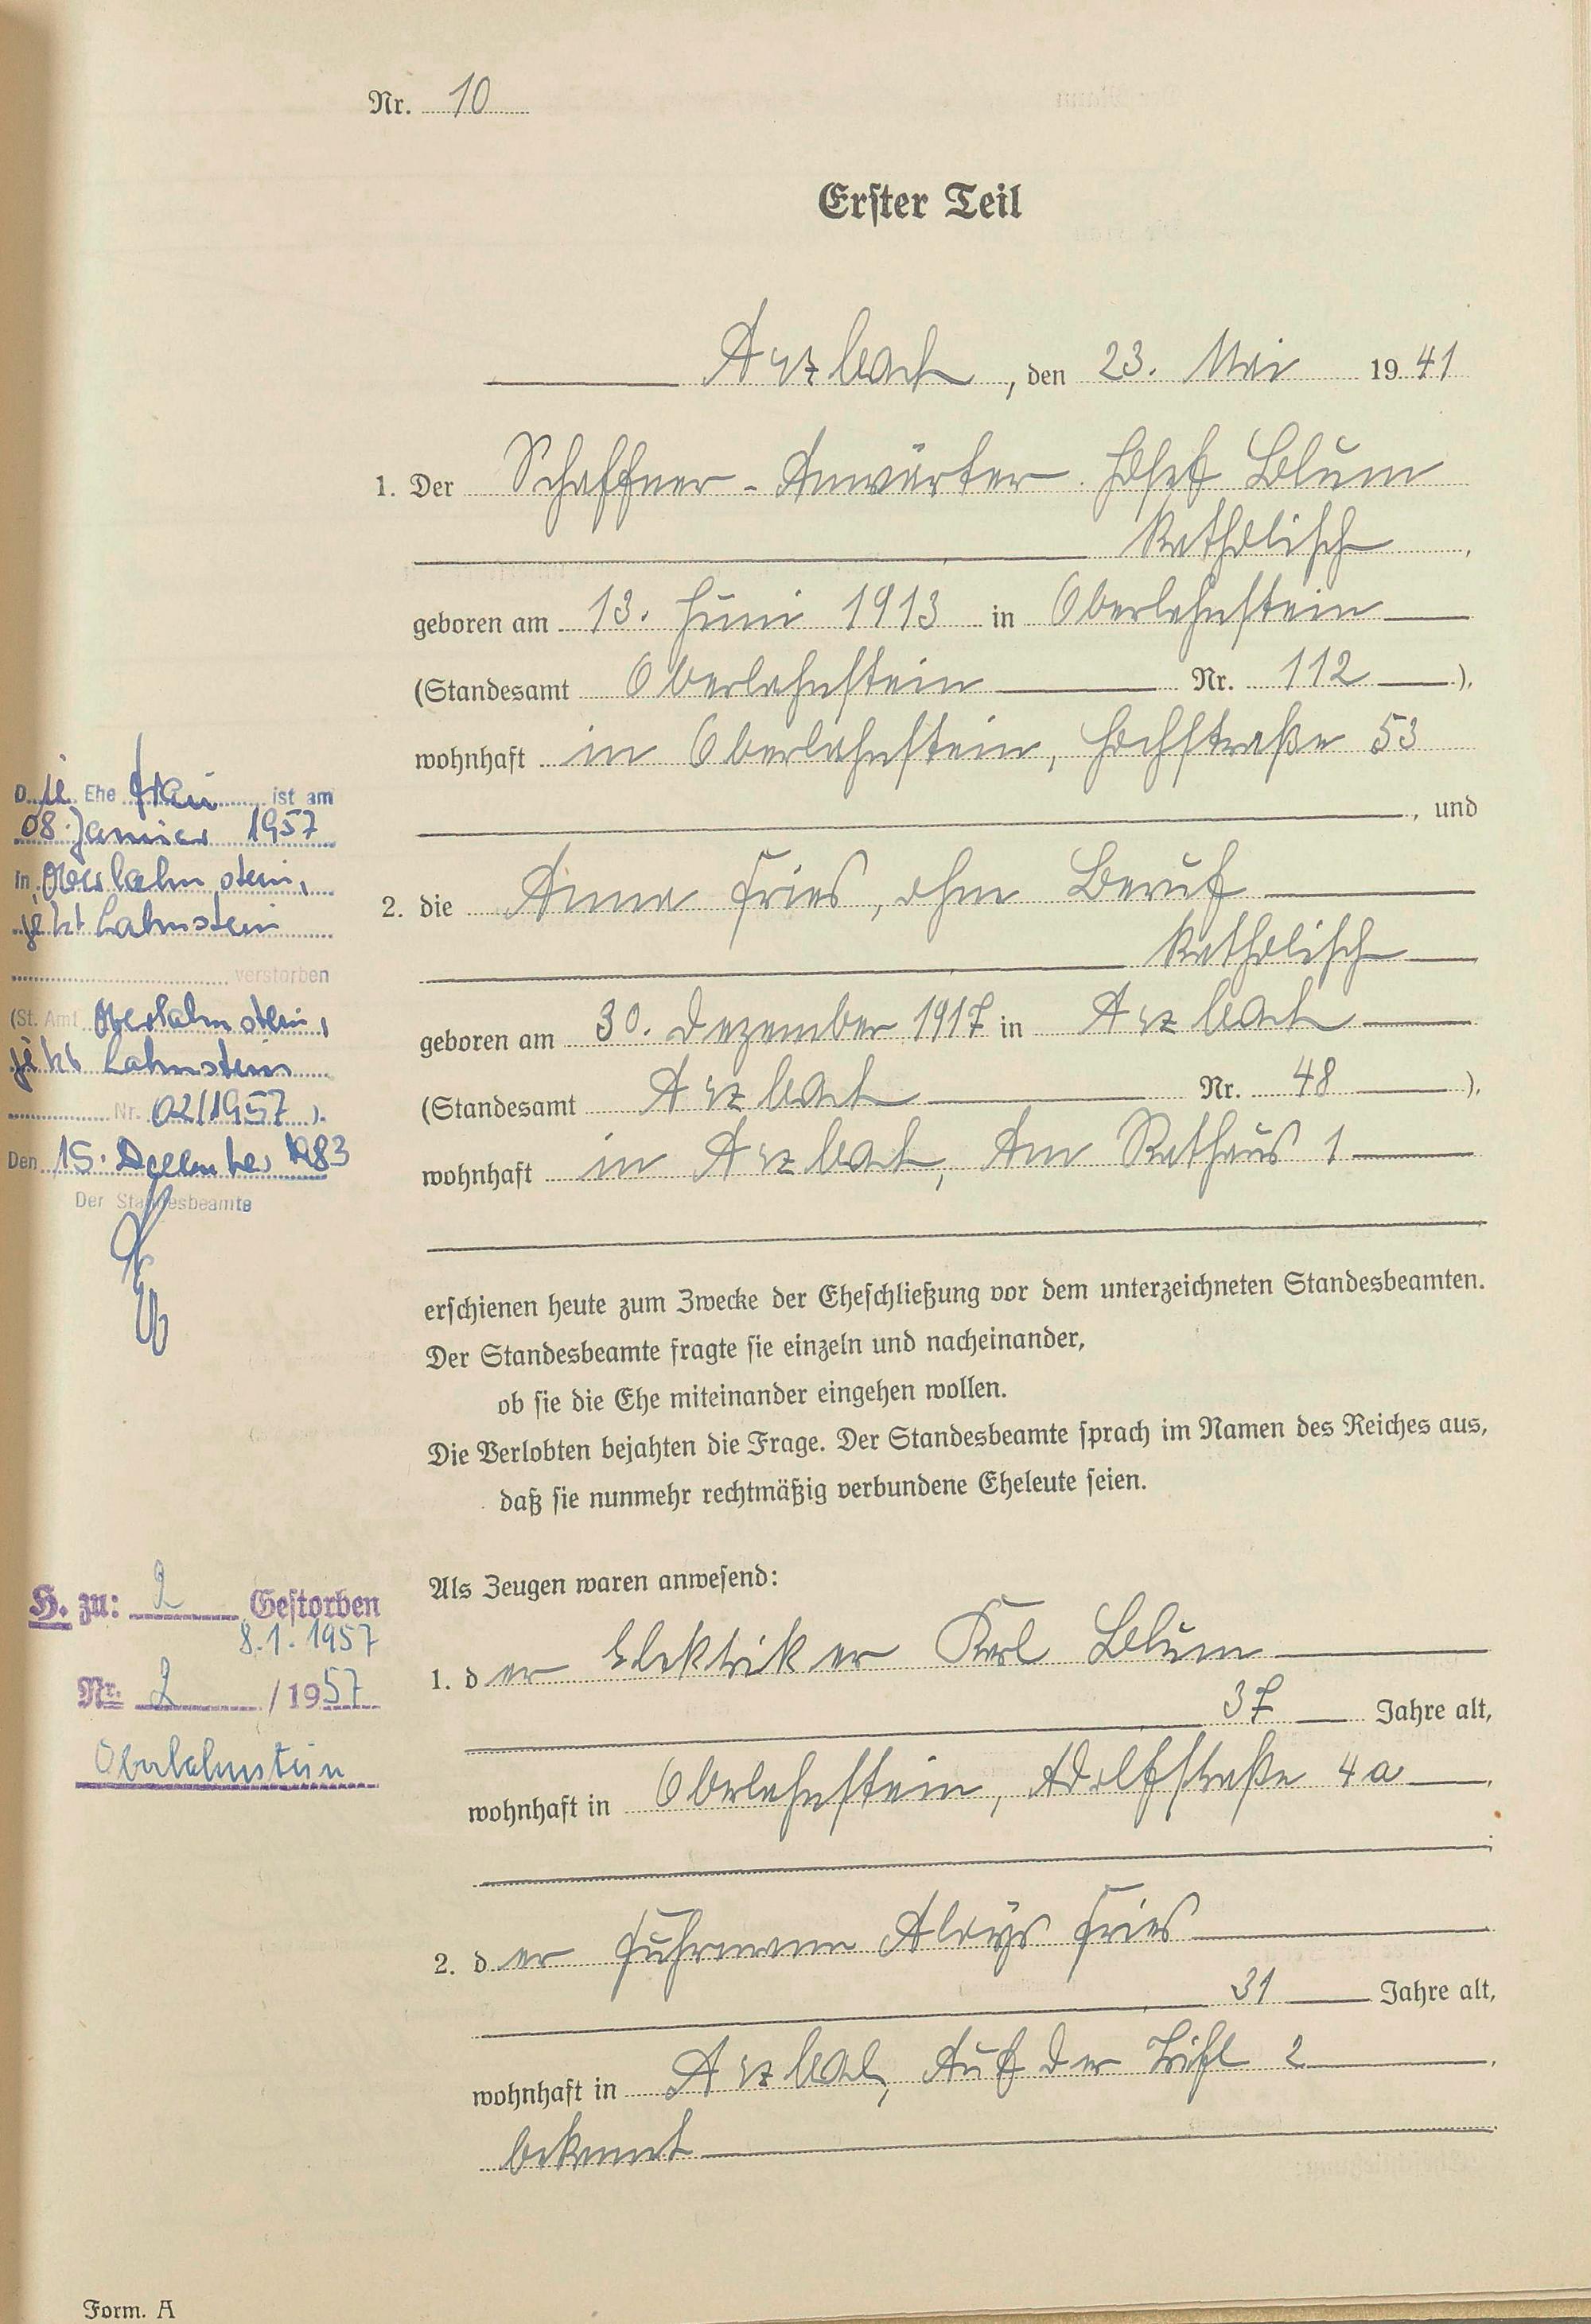 Nr. 10
Erster Teil
Arzbach, den 23. Mai 1941
1. Der Schaffner-Anwärter Josef Blum
katholisch,
geboren am 13. Juni 1913 in Oberlahnstein
(Standesamt Oberlahnstein Nr. 112),
wohnhaft in Oberlahnstein, Hochstraße 53
, und
2. die Anna Fries, ohne Beruf
katholisch
geboren am 30. Dezember 1917 in Arzbach
(Standesamt Arzbach Nr. 48),
wohnhaft in Arzbach, Am Rathaus 1
erschienen heute zum Zwecke der Eheschließung vor dem unterzeichneten Standesbeamten.
Der Standesbeamte fragte sie einzeln und nacheinander,
ob sie die Ehe miteinander eingehen wollen.
Die Verlobten bejahten die Frage. Der Standesbeamte sprach im Namen des Reiches aus,
daß sie nunmehr rechtmäßig verbundene Eheleute seien.
Als Zeugen waren anwesend:
1. der Elektriker Karl Blum
37 Jahre alt,
wohnhaft in Oberlahnstein, Adolfstraße 4a,
;
2. der Fuhrmann Aloys Fries
31 Jahre alt,
wohnhaft in Arzbach, Auf der 2,
bekannt
Die Ehefrau ist am
08. Januar 1957
in Oberlahnstein,
jetzt Lahnstein
verstorben
(St. Amt Oberlahnstein,
jetzt Lahnstein
Nr. 02/1957).
Den 15. Dezember 1983
Der Standesbeamte
H. zu: 2 Gestorben
8.1.1957
Nr. 2 / 1957
Oberlahnstein
Form. A